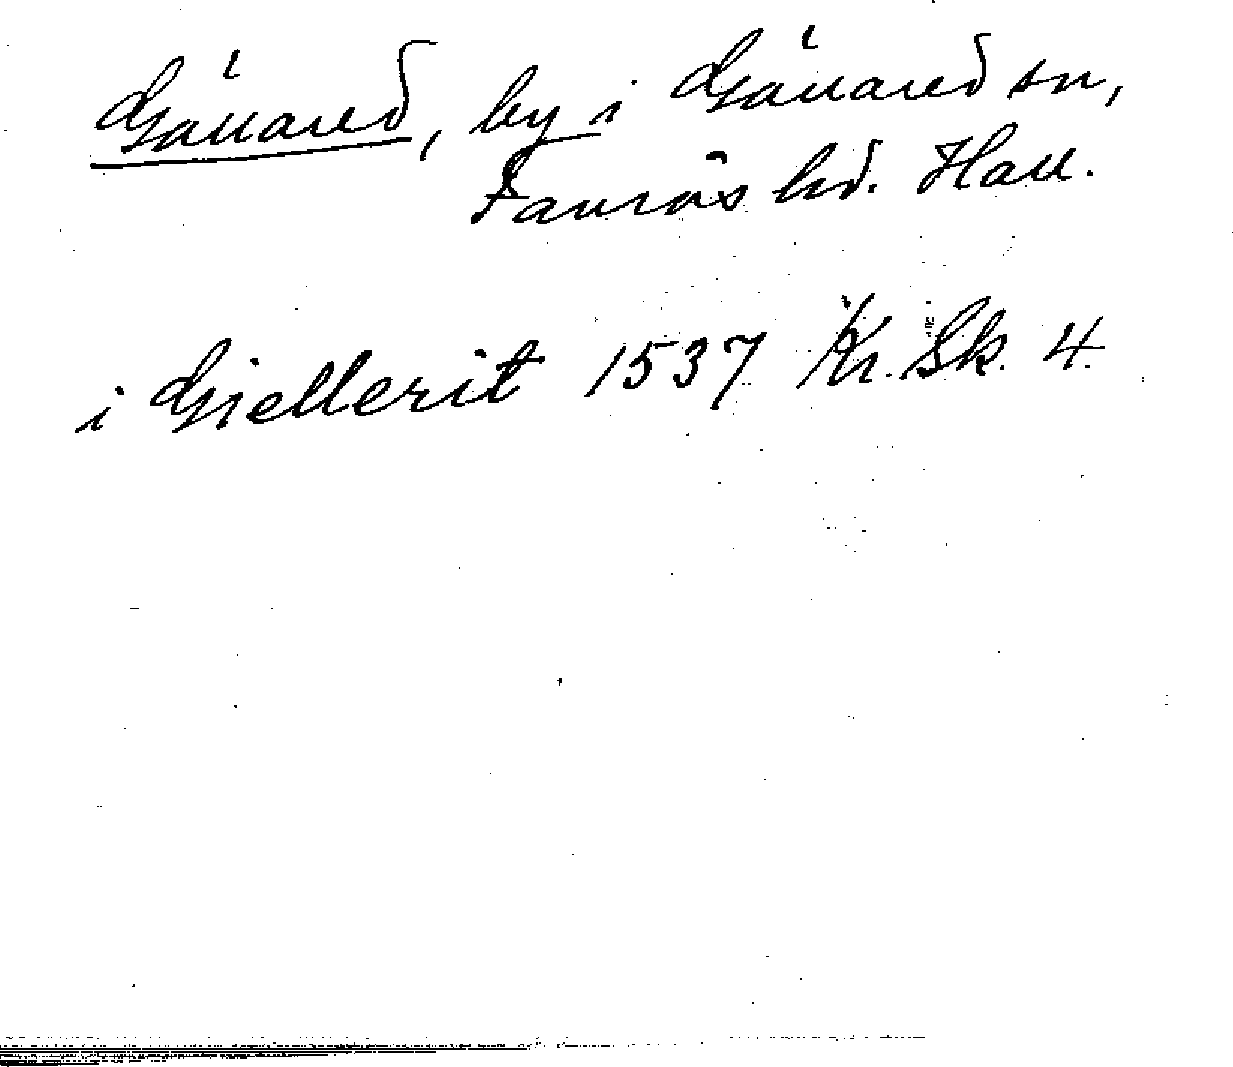 Gällared, by i Gällared sn,
Faurås hd. Hall.
i Giellerit 1537 Kr. Sk. 4.